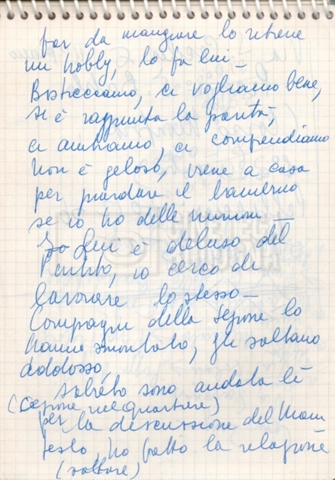 far da mangiare lo ritiene
un hobby, lo fa lui -
Bisticciamo, ci vogliamo bene,
si è raggiunta la parità,
ci amiamo, ci comprendiamo
Non è geloso, viene a casa
per guardare il bambino
se io ho delle riunioni -
Lui è deluso del
Partito, io cerco di
lavorare lo stesso -
Compagni della sezione lo
hanno smontato, gli saltano
addosso,
sabato sono andata lì
(sezione nel quartiere)
per la discussione del Mani
festo, ho fatto la relazione